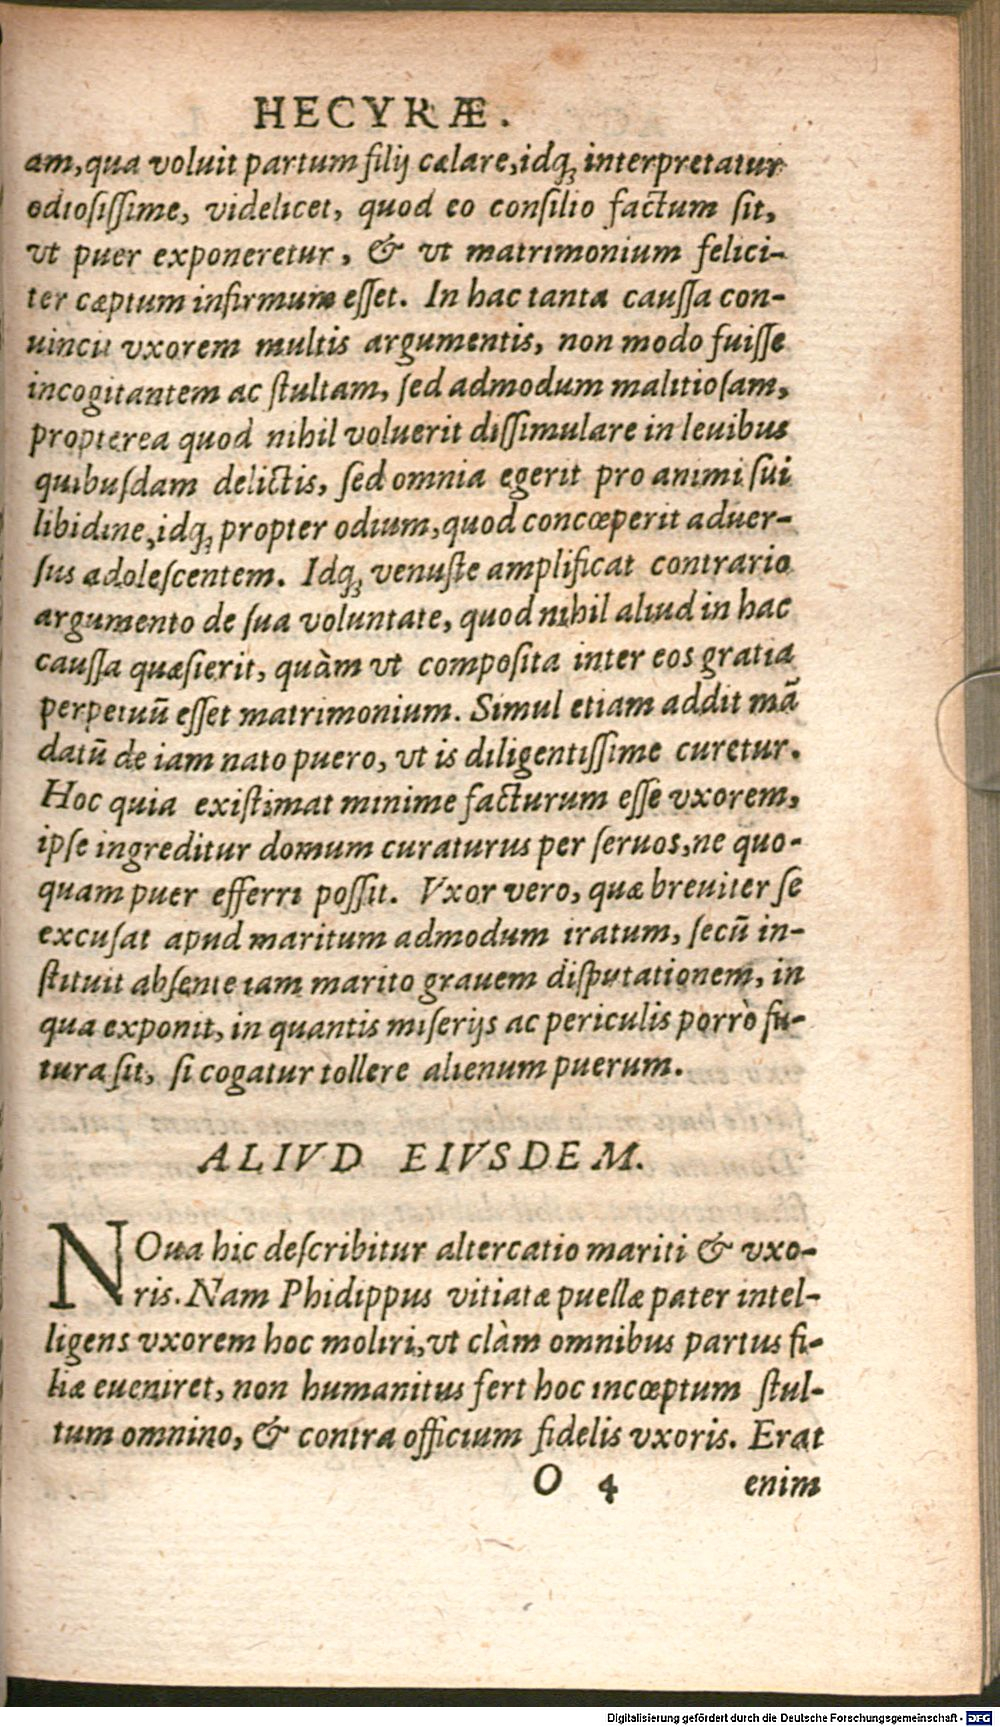 HECYRÆ.
am, qua voluit partum filij cælare, idq́; interpretatur
odiosissime, videlicet, quod eo consilio factum sit,
vt puer exponeretur, & vt matrimonium felici-
ter cæptum infirmum esset. In hac tanta caussa con-
uincit vxorem multis argumentis, non modo fuisse
incogitantem ac stultam, sed admodum malitiosam,
propterea quod nihil voluerit dissimulare in leuibus
quibusdam delictis, sed omnia egerit pro animi sui
libidine, idq́; propter odium, quod concœperit aduer-
sus adolescentem. Idq́; venuste amplificat contrario
argumento de sua voluntate, quod nihil aliud in hac
caussa quæsierit, quàm vt composita inter eos gratia
perpetuū esset matrimonium. Simul etiam addit mā
datū de iam nato puero, vt is diligentissime curetur.
Hoc quia existimat minime facturum esse vxorem,
ipse ingreditur domum curaturus per seruos, ne quo-
quam puer efferri possit. Vxor vero, quæ breuiter se
excusat apud maritum admodum iratum, secū in-
stituit absente iam marito grauem disputationem, in
qua exponit, in quantis miserijs ac periculis porrò fu-
tura sit, si cogatur tollere alienum puerum.
ALIVD EIVSDEM.
NOua hic describitur altercatio mariti & vxo-
ris. Nam Phidippus vitiatæ puellæ pater intel-
ligens vxorem hoc moliri, vt clàm omnibus partus fi-
liæ eueniret, non humanitus fert hoc incœptum stul-
tum omnino, & contra officium fidelis vxoris. Erat
O 4 enim
Digitalisierung gefördert durch die Deutsche Forschungsgemeinschaft - DFG